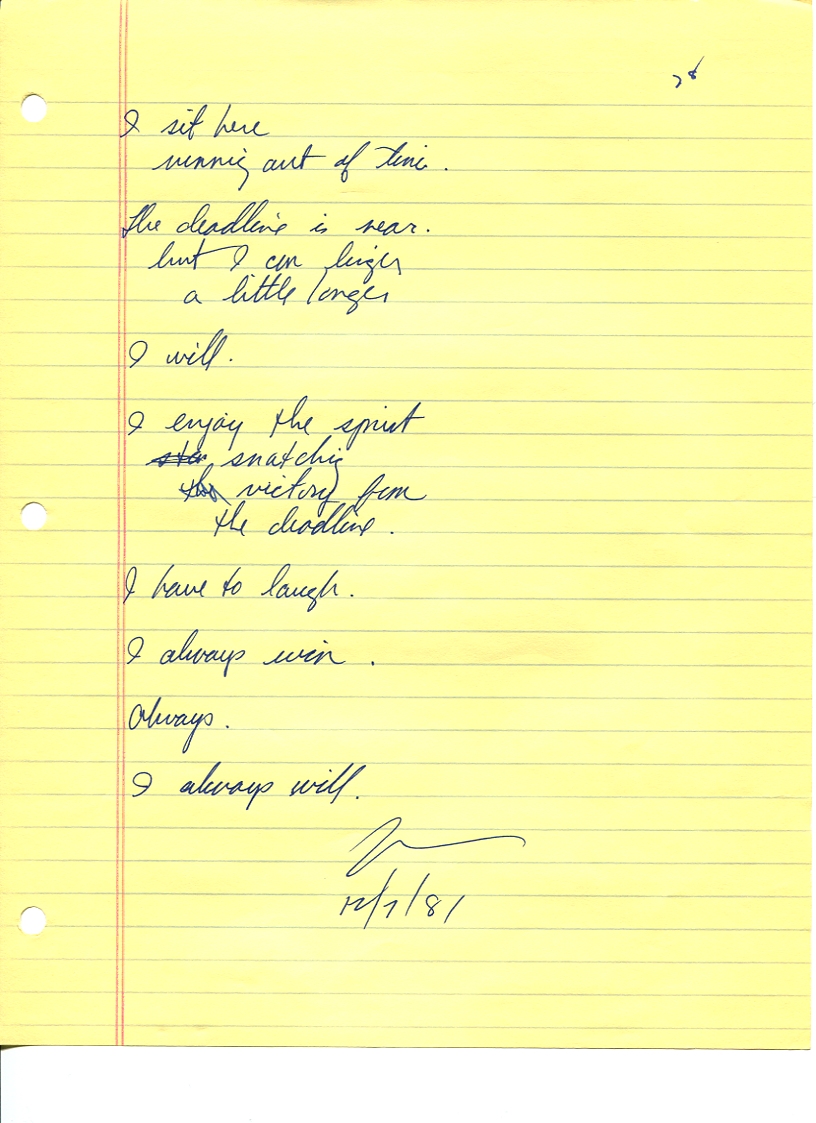 I sit here
running out of time.
The deadline is near.
but I can linger
a little longer
I will.
I enjoy the sprint
snatching
victory from
the deadline.
I have to laugh.
I always win.
Always.
I always will.
12/7/81